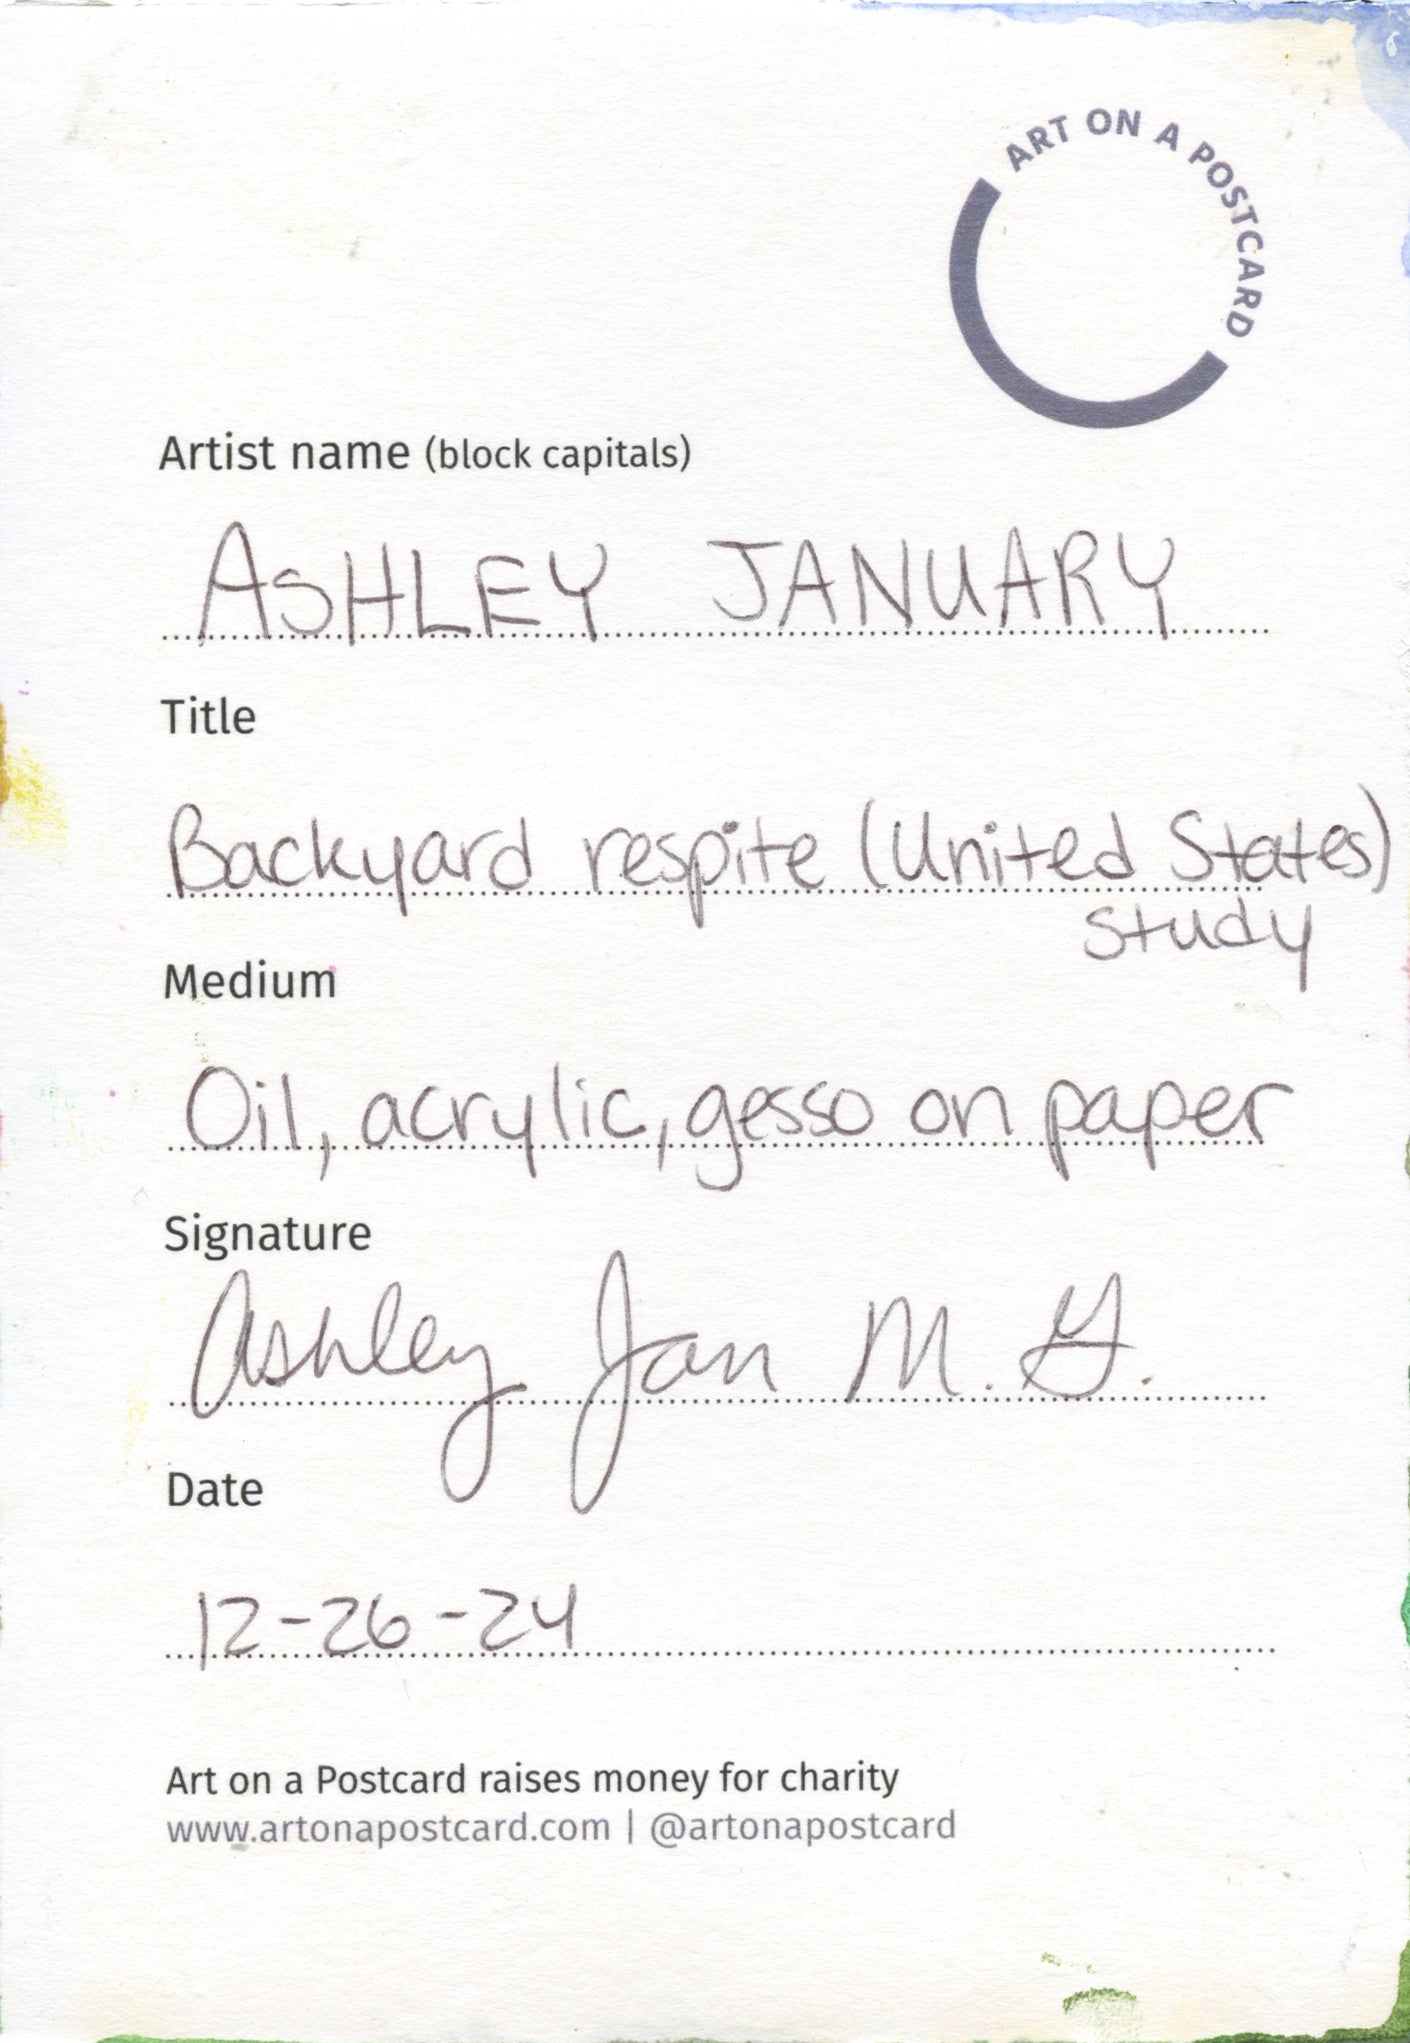 ART ON A POSTCARD
Artist name (block capitals)
ASHLEY JANUARY
Title
Backyard respite (United States)
study
Medium
Oil, acrylic, gesso on paper
Signature
Ashley Jan M. G.
Date
12-26-24
Art on a Postcard raises money for charity
www.artonapostcard.com | @artonapostcard